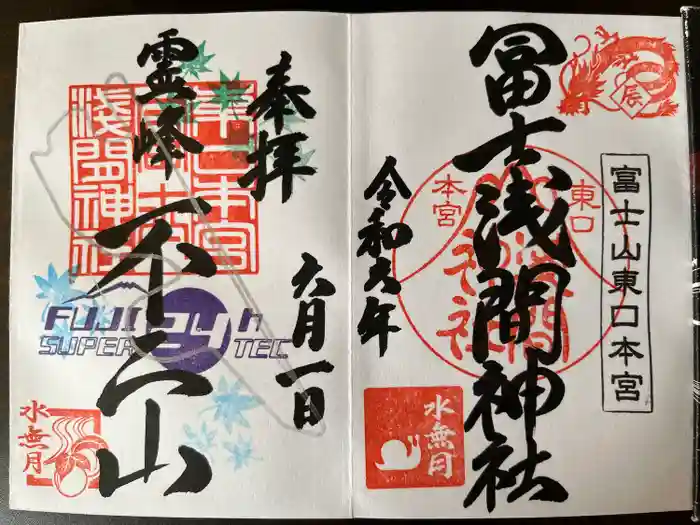 辰
富士山東口本宮
冨士浅間神社
東口
本宮
水無月
令和六年
奉拝
六月一日
霊峰
不二山
淺間神社
FUJI 24h
SUPER TEC
水無月